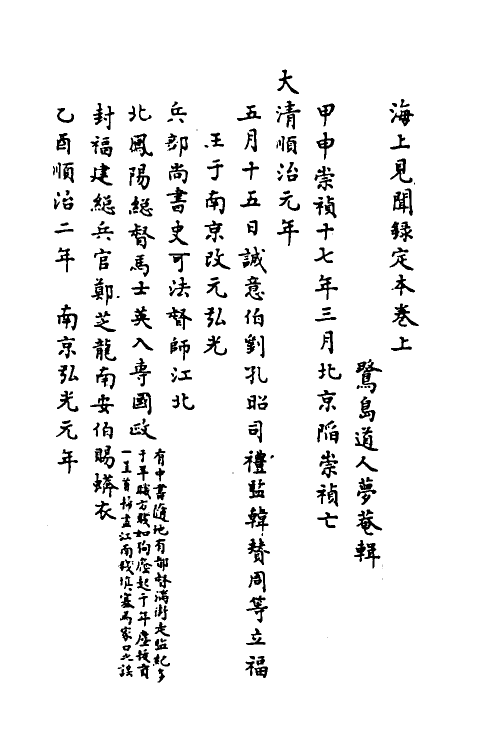 海上見聞錄定本卷上
鷺島道人夢菴輯
甲申崇禎十七年三月北京陷崇禎亡
大清順治元年
五月十五日誠意伯劉孔昭司禮監韓贊周等立福
王于南京改元弘光
兵部尚書史可法督師江北
北鳳陽總督馬士英入專國政
有中書隨地有都督滿街走監紀多
于羊職方賤如狗廕起千年塵拔貢
一呈首掃盡江南錢填塞馬家口之謠
封福建總兵官鄭芝龍南安伯賜蟒衣
乙酉順治二年 南京弘光元年